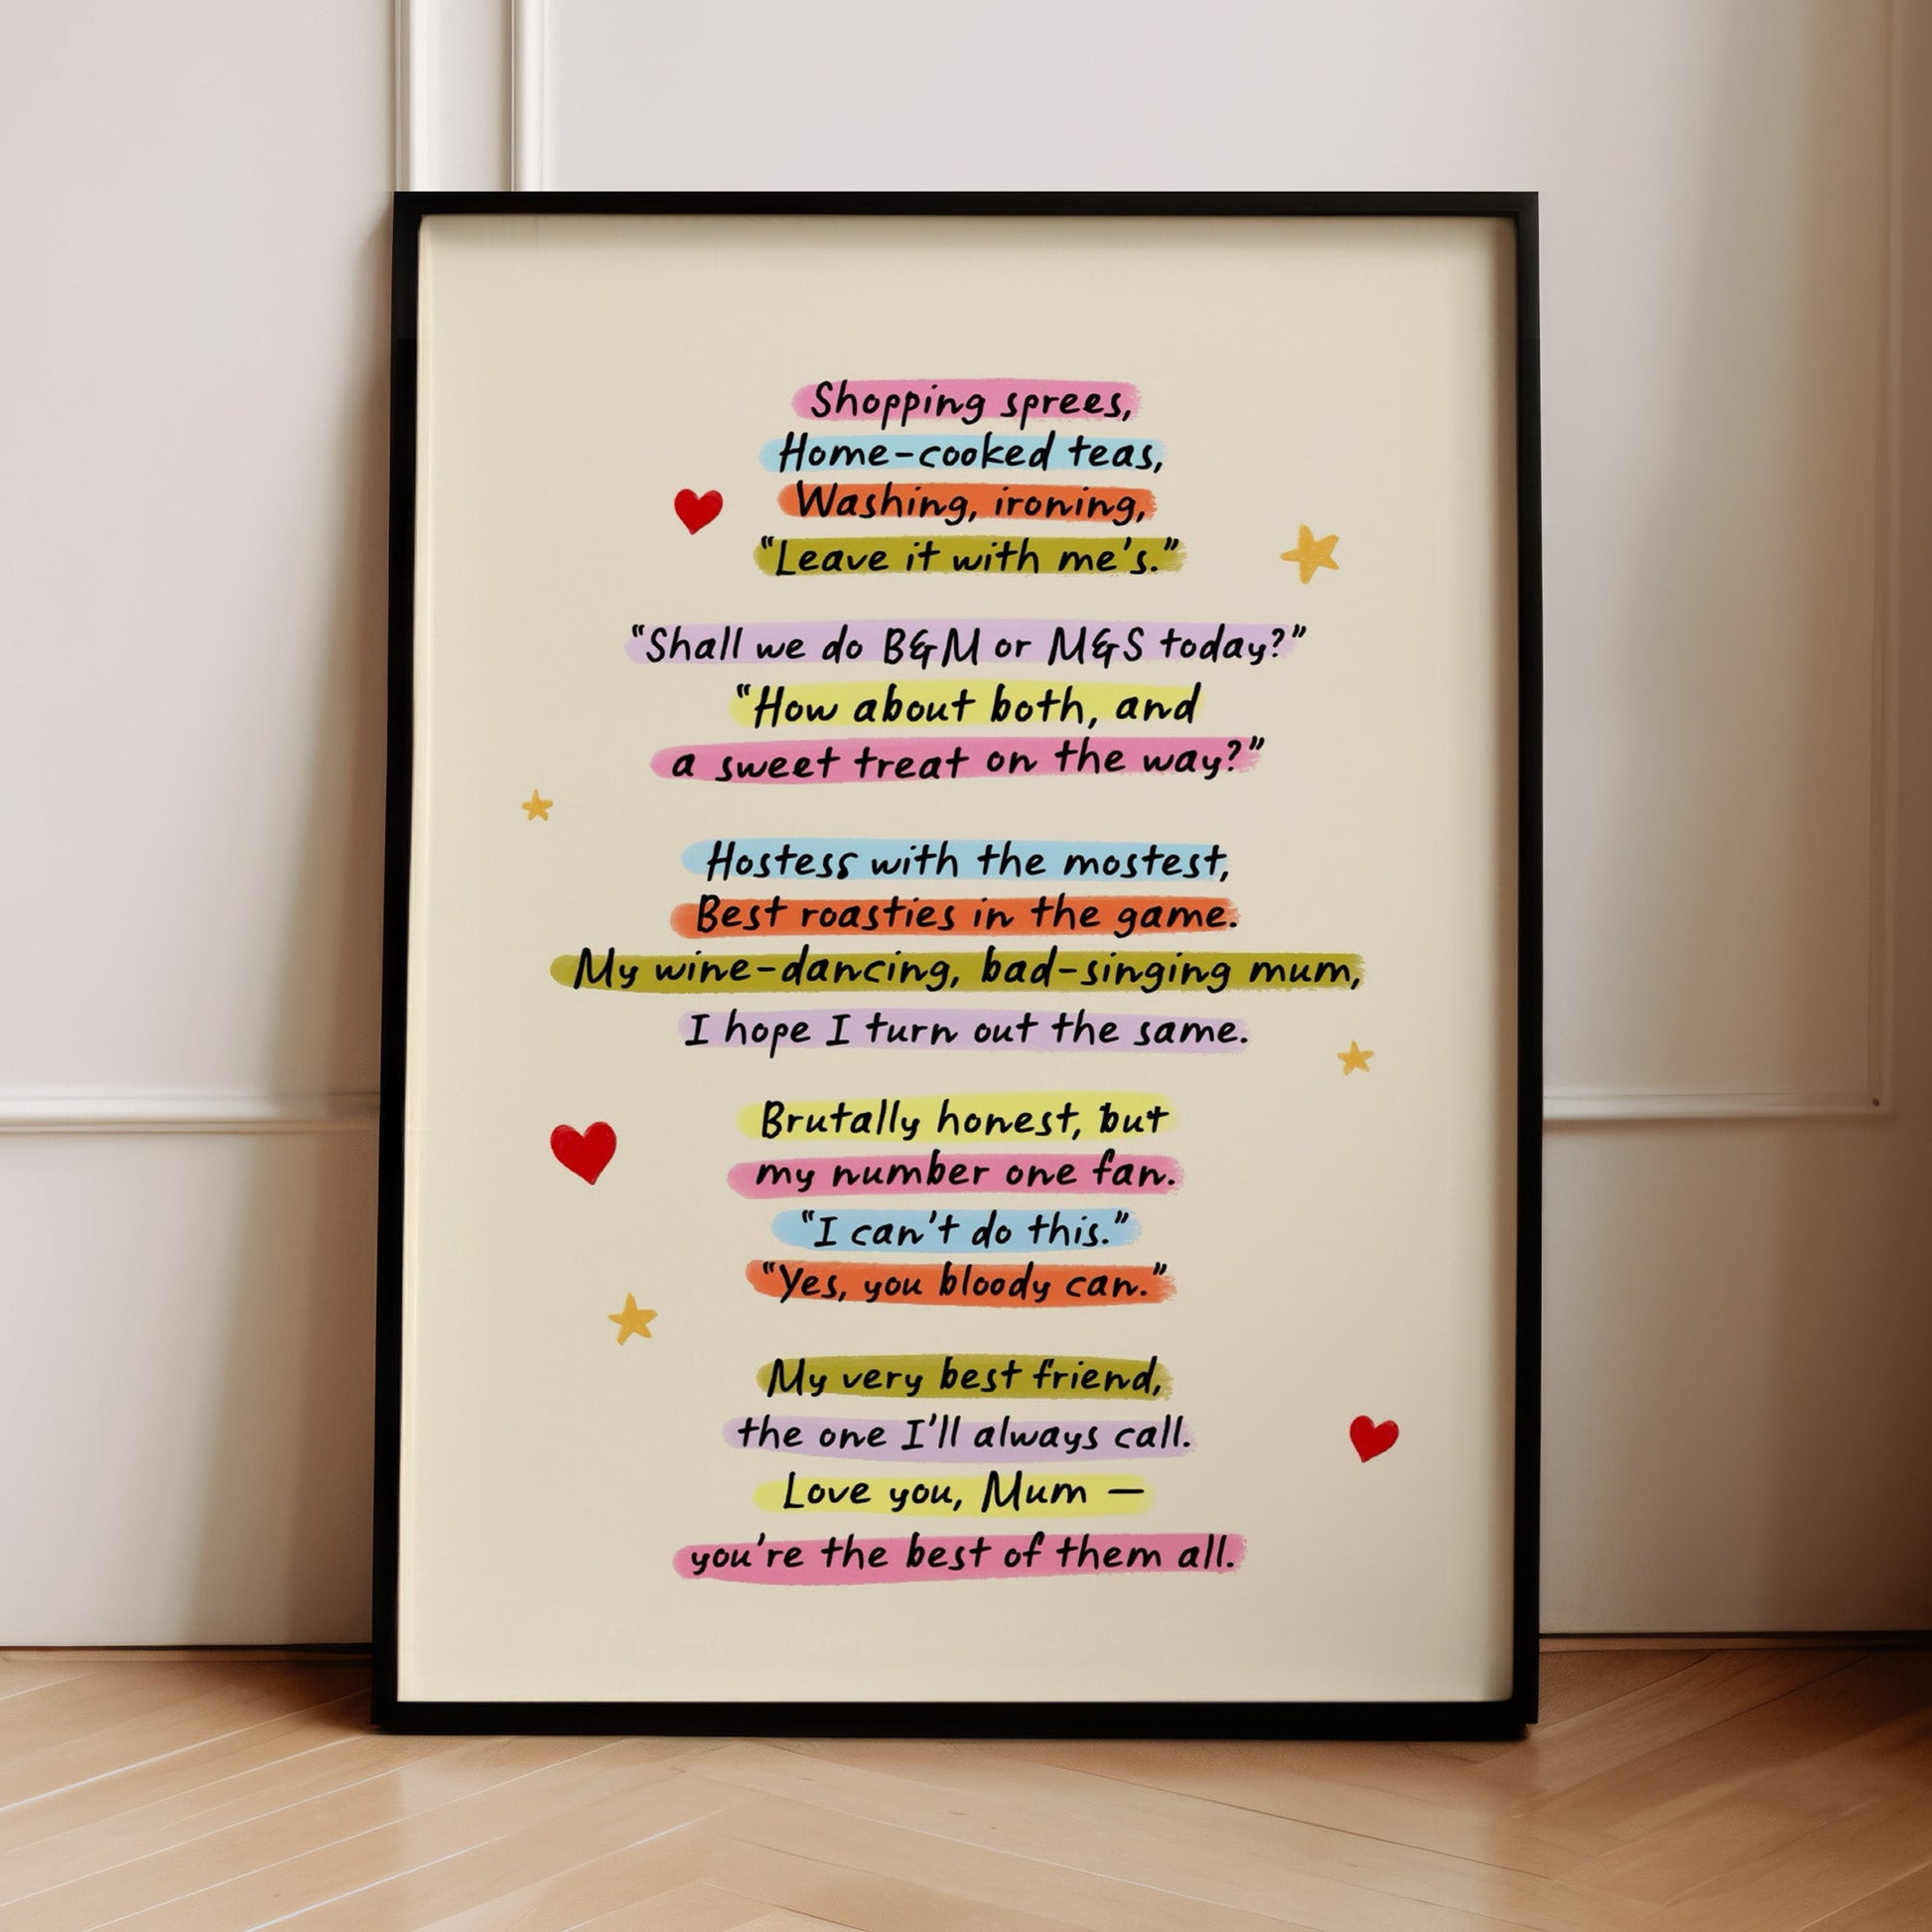 Shopping sprees,
Home-cooked teas,
Washing, ironing,
“Leave it with me’s.”
“Shall we do B&M or M&S today?”
“How about both, and
a sweet treat on the way?”
Hostess with the mostest,
Best roasties in the game.
My wine-dancing, bad-singing mum,
I hope I turn out the same.
Brutally honest, but
my number one fan.
“I can’t do this.”
“Yes, you bloody can.”
My very best friend,
the one I’ll always call.
Love you, Mum —
you’re the best of them all.